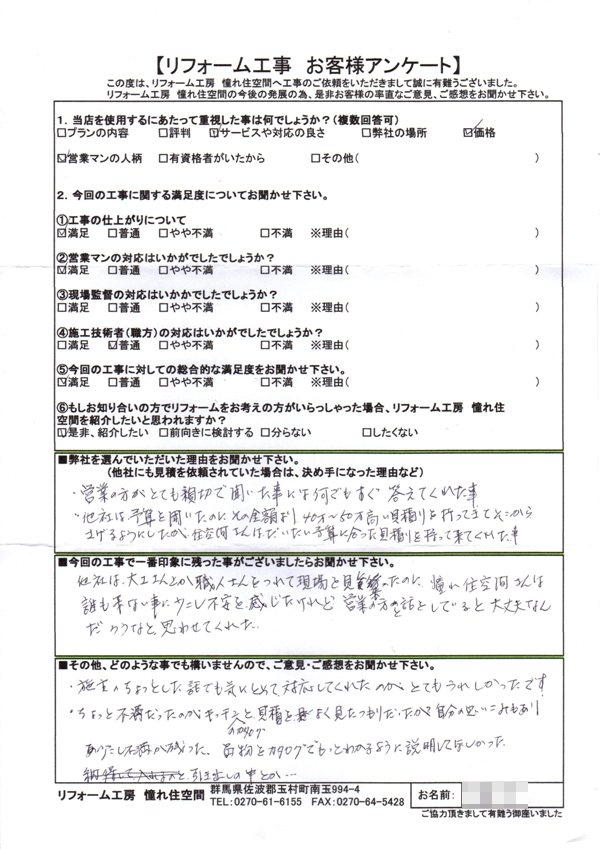 【リフォーム工事 お客様アンケート】
この度は、リフォーム工房 憧れ住空間へ工事のご依頼をいただきまして誠に有難うございました。
リフォーム工房 憧れ住空間の今後の発展の為、是非お客様の率直なご意見、ご感想をお聞かせ下さい。
1．当店を使用するにあたって重視した事は何でしょうか？（複数回答可）
□プランの内容 □評判 ☑サービスや対応の良さ □弊社の場所 ☑価格
☑営業マンの人柄 □有資格者がいたから □その他( )
2．今回の工事に関する満足度についてお聞かせ下さい。
①工事の仕上がりについて
☑満足 □普通 □やや不満 □不満 ※理由( )
②営業マンの対応はいかがでしたでしょうか？
☑満足 □普通 □やや不満 □不満 ※理由( )
③現場監督の対応はいかかでしたでしょうか？
☑満足 □普通 □やや不満 □不満 ※理由( )
④施工技術者（職方）の対応はいかがでしたでしょうか？
□満足 ☑普通 □やや不満 □不満 ※理由( )
⑤今回の工事に対しての総合的な満足度をお聞かせ下さい。
☑満足 □普通 □やや不満 □不満 ※理由( )
⑥もしお知り合いの方でリフォームをお考えの方がいらっしゃった場合、リフォーム工房 憧れ住
空間を紹介したいと思われますか？
☑是非、紹介したい □前向きに検討する □分らない □したくない
■弊社を選んでいただいた理由をお聞かせ下さい。
（他社にも見積を依頼されていた場合は、決め手になった理由など）
・営業の方がとても親切で聞いた事には何でもすぐ答えてくれた事
・他社は予算を聞いたのにその金額より40万～50万高い見積りを持ってきてそこから
上げるようにしたが住空間さんはだいたい予算に合った見積りを持って来てくれた事
■今回の工事で一番印象に残った事がございましたらお聞かせ下さい。
他社は、大工さんとか職人さんをつれて現場を見たのに、憧れ住空間さんは
誰も来ない事に少し不安を感じたけれど営業の方と話をしていると大丈夫なん
だろうなと思わせてくれた。
■その他、どのような事でも構いませんので、ご意見・ご感想をお聞かせ下さい。
・施工のちょっとした話でも気にとめて対応してくれたのがとてもうれしかったです
・ちょっと不満だったのがキッチンを見積をよく見たつもりだったが自分の思いこみもあり
のカタログ
少し不満が残った、品物とカタログでもっとわかるように説明してほしかった。
引き出しの中とか…
リフォーム工房 憧れ住空間 群馬県佐波郡玉村町南玉994-4
TEL：0270-61-6155 FAX：0270-64-5428
お名前：
ご協力頂きまして有難う御座いました